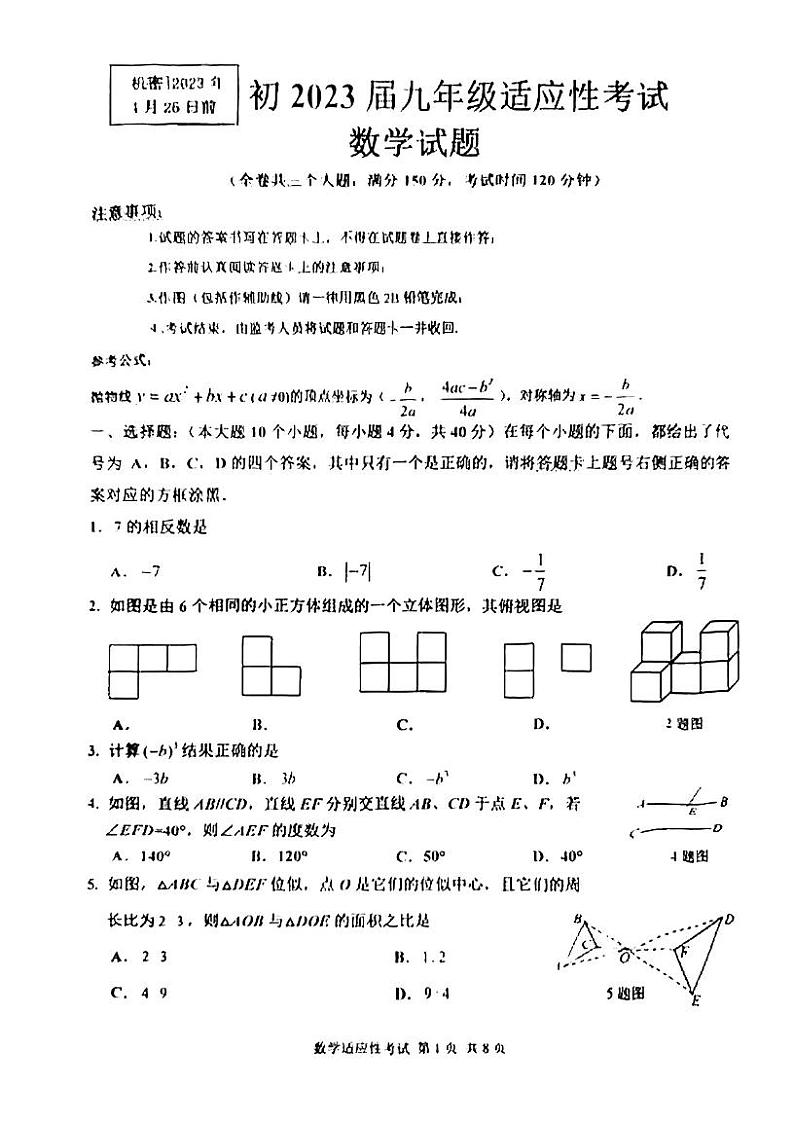 机密]2023年
4月26日前
初2023届九年级适应性考试
数学试题
(全卷共三个大题,满分150分,考试时间120分钟)
注意事项:
1.试题的答案书写在答题卡上,不得在试题卷上直接作答;
2.作答前认真阅读答题卡上的注意事项;
3.作图(包括作辅助线)请一律用黑色2B铅笔完成;
4.考试结束,由监考人员将试题和答题卡一并收回.
参考公式:
抛物线 y = ax² + bx + c (a≠0)的顶点坐标为 (-b/2a, (4ac-b²)/4a ), 对称轴为 x = -b/2a .
一、选择题:(本大题10个小题,每小题4分,共40分)在每个小题的下面,都给出了代
号为 A、B、C、D的四个答案,其中只有一个是正确的,请将答题卡上题号右侧正确的答
案对应的方框涂黑.
1. 7的相反数是
A. -7 B. |-7| C. -1/7 D. 1/7
2. 如图是由6个相同的小正方体组成的一个立体图形,其俯视图是
A. B. C. D. 2题图
3. 计算(-b)³结果正确的是
A. -3b B. 3b C. -b³ D. b³
4. 如图,直线AB//CD,直线EF分别交直线AB、CD于点E、F,若
A E B
∠EFD=40°,则∠AEF的度数为
C D
A. 140° B. 120° C. 50° D. 40° 4题图
5. 如图,△ABC与△DEF位似,点O是它们的位似中心,且它们的周
长比为2 3,则△AOB与△DOE的面积之比是
B C O F D E
A. 2 3 B. 1:2
C. 4 9 D. 9:4 5题图
数学适应性考试 第1页 共8页